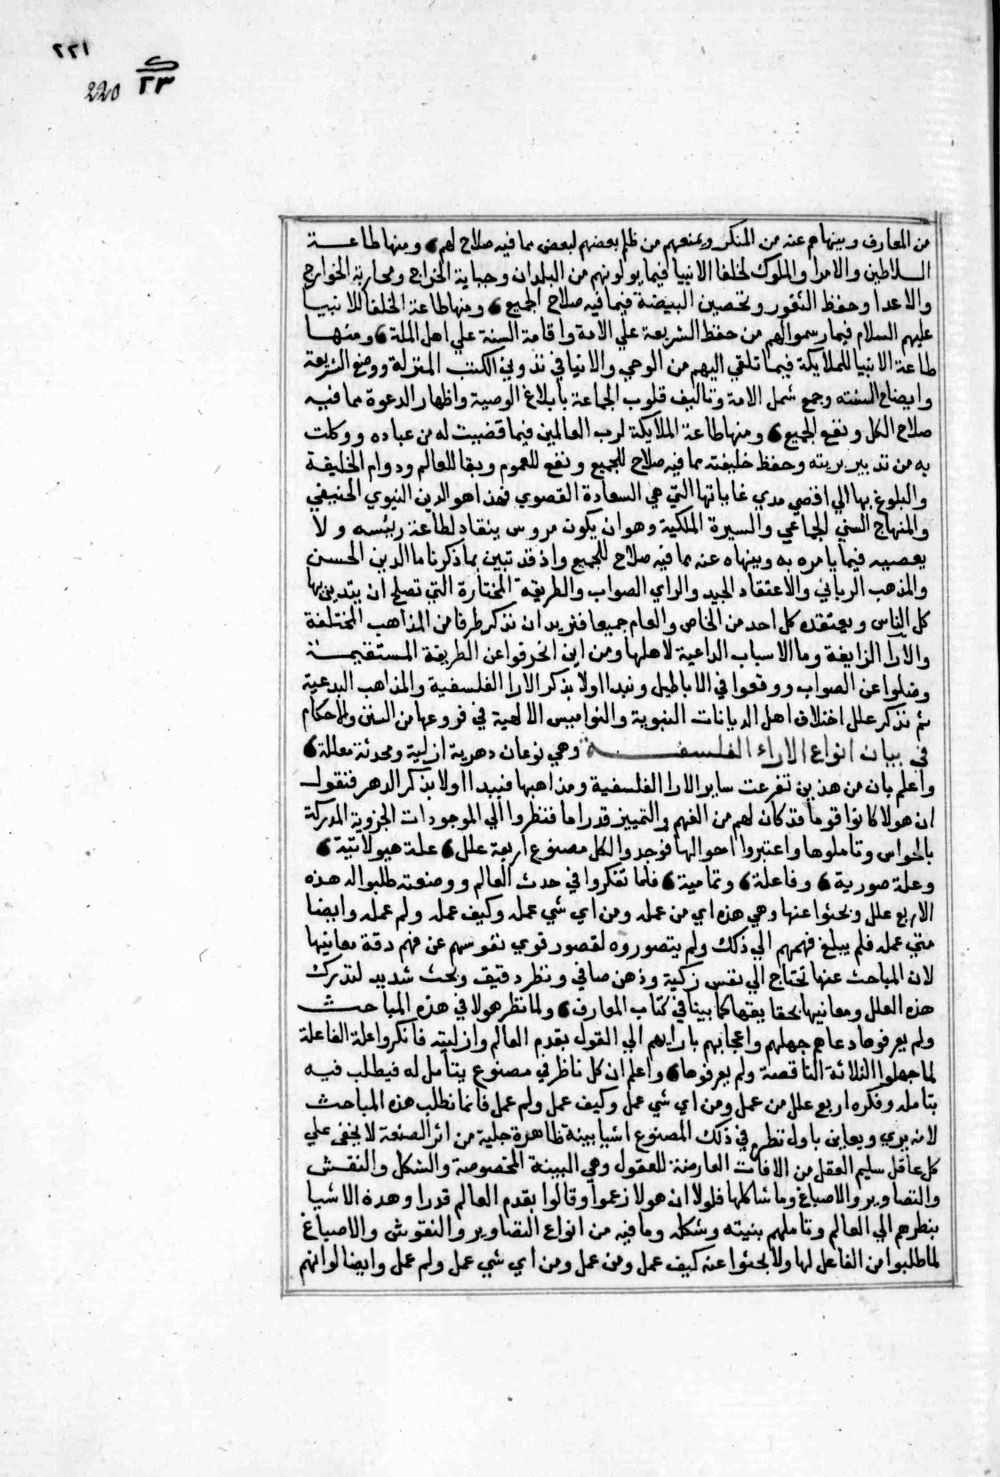 ٢٢١
ك
٢٣
220
من المعارف وينهاهم عنه من المنكر ويمنعهم من ظلم بعضهم لبعض مما فيه صلاح لهم، ومنها طاعـــة
السلاطين والامرا والملوك لخلفا الانبيا فيما يولونهم من البلدان وجباية الخراج ومحاربة الخوارج
والاعدا وحفظ الثغور وتحصين البيضة فيما فيه صلاح الجميع، ومنها طاعة الخلفا للانبيا
عليهم السلام فيما رسموا لهم من حفظ الشريعة علي الامة واقامة السنة علي اهل الملة، ومنهـا
طاعة الانبيا للملايكة فيما تلقي اليهم من الوحي والانبا في تدوين الكتب المنزلة ووضع الشريعة
وايضاح السنته وجمع شمل الامة وتاليف قلوب الجماعة بابلاغ الوصية واظهار الدعوة مما فيه
صلاح الكل ونفع الجميع، ومنها طاعة الملايكة لرب العالمين فيما قضيت له من عباده ووكلت
به من تدبير بريته وحفظ خليقته مما فيه صلاح للجميع ونفع للعموم وبقا للعالم ودوام الخليقة
والبلوغ بها الي اقصي مدي غاياتها التي هي السعادة القصوي فهذا هو الدين النبوي الحنيفي
والمنهاج السني الجماعي والسيرة الملكية وهو ان يكون مروس ينقاد لطاعة رييسه ولا
يعصيه فيما يامره به وينهاه عنه مما فيه صلاح للجميع واذ قد تبين بما ذكرنا ما الدين الحسن
والمذهب الرباني والاعتقاد الجيد والراي الصواب والطريقة المختارة التي تصلح ان يتدين بها
كل الناس ويعتقده كل احد من الخاص والعام جميعا فنريد ان نذكر طرفا من المذاهب المختلفة
والارا الزايغة وما الاسباب الداعية لاهلها ومن اين انحرفوا عن الطريقة المستقيمـــة
وضلوا عن الصواب ووقعوا في الاباطيل ونبدا اولا بذكر الارا الفلسفية والمذاهب البدعية
ثم نذكر علل اختلاف اهل الديانات النبوية والنواميس الالهية في فروعها من السنن والاحكام
في بيان انواع الاراء الفلسفـــــــة وهي نوعان دهرية ازلية ومحدثة معللة،
واعلم بان من هذين تفرعت ساير الارا الفلسفية ومذاهبها فنبدا اولا بذكر الدهر فنقول
ان هولا كانوا قوما قد كان لهم من الفهم والتمييز قدرا ما فنظروا الي الموجودات الجزوية المدركة
بالحواس وتاملوها واعتبروا احوالها فوجدوا لكل مصنوع اربعة علل، علة هيولانية،
وعلة صورية، وفاعلة، وتمامية، فلما تفكروا في حدث العالم ووصنعته طلبوا له هذه
الاربع علل وبحثوا عنها وهي هذه اي من عمله ومن اي شي عمله وكيف عمله ولم عمله وايضا
متي عمله فلم يبلغ فهمهم الي ذلك ولم يتصوروه لقصور قوي نفوسهم عن فهم دقة معانيها
لان المباحث عنها تحتاج الي نفس زكية وذهن صافي ونظر دقيق وبحث شديد لتدرك
هذه العلل ومعانيها بحقايقها كما بينا في كتاب المعارف، ولما نظر هولا في هذه المباحث
ولم يعرفوها دعاهم جهلهم واعجابهم بارايهم الي القول بقدم العالم وازليته فانكروا علة الفاعلة
لما جهلوا الثلاثة الناقصة ولم يعرفوها، واعلم ان كل ناظر في مصنوع يتامل له فيطلب فيه
بتامله وفكره اربع علل من عمل ومن اي شي عمل وكيف عمل ولم عمل فانما نطلب هذه المباحث
لانه يري ويعاين باول نظره في ذلك المصنوع اشيا بينة ظاهرة جلية من اثر الصنعة لا يخفي علي
كل عاقل سليم العقل من الافات العارضة للعقول وهي البينة المخصوصة والشكل والنقش
والتصاوير والاصباغ وما شاكلها فلولا ان هولا زعموا وقالوا بقدم العالم قد راوا هذه الاشيا
بنظرهم الي العالم وتاملهم بنيته وشكله وما فيه من انواع التصاوير والنقوش والاصباغ
لما طلبوا من الفاعل لها ولا بحثوا عنه كيف عمل ومن عمل ومن اي شي عمل ولم عمل وايضا لو انهم